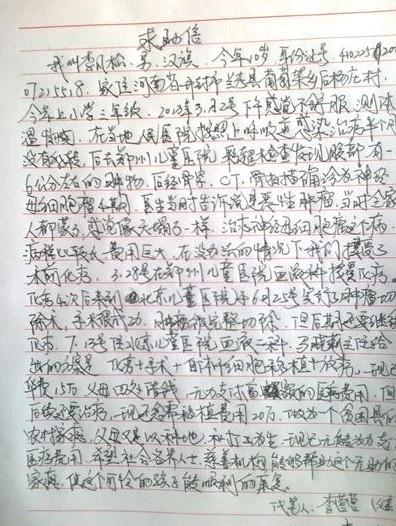 求助信
我叫李凡松，男，汉族，今年10岁，身份证号410225
家住河南省开封市兰考县葡萄架乡后杨庄村，
今年上小学三年级，2013年3月2号下午感觉不舒服，测体
温发烧，在当地人民医院按照上呼吸道感染治疗半个月
没有好转，后去郑州儿童医院，彩超检查发现腹部有一
6公分左右的肿物，后经骨穿，CT，骨扫描确诊为神经
母细胞瘤4期，医生当时告诉说是恶性肿瘤，当时全家
人都蒙了，感觉像天塌了一样，治疗神经母细胞瘤这个病
病程比较长费用巨大，在没办法的情况下我们接受了
术前化疗，3.28号在郑州儿童医院血液科接受化疗，
化疗4次后来到北京儿童医院，6月25号实行了肿瘤切
除术，手术很成功，肿瘤被完整切除，但后期还要继续
化疗，7.13号住北京儿童医院血液二科，马晓莉主任给
出的方案是化疗+手术+自体干细胞移植+放疗，现已
花费15万，父母四处借钱，无力支付后续的医疗费用，
后续还要治疗，现已需要移植费用20万，做为一个贫困县的
农村家庭，父母只是以种地，和打工为生，现已无能为力支
医疗费用，希望社会各界人士，慈善机构能够帮助这个无助的
家庭，使这个可怜的孩子能顺利的
代笔人：李